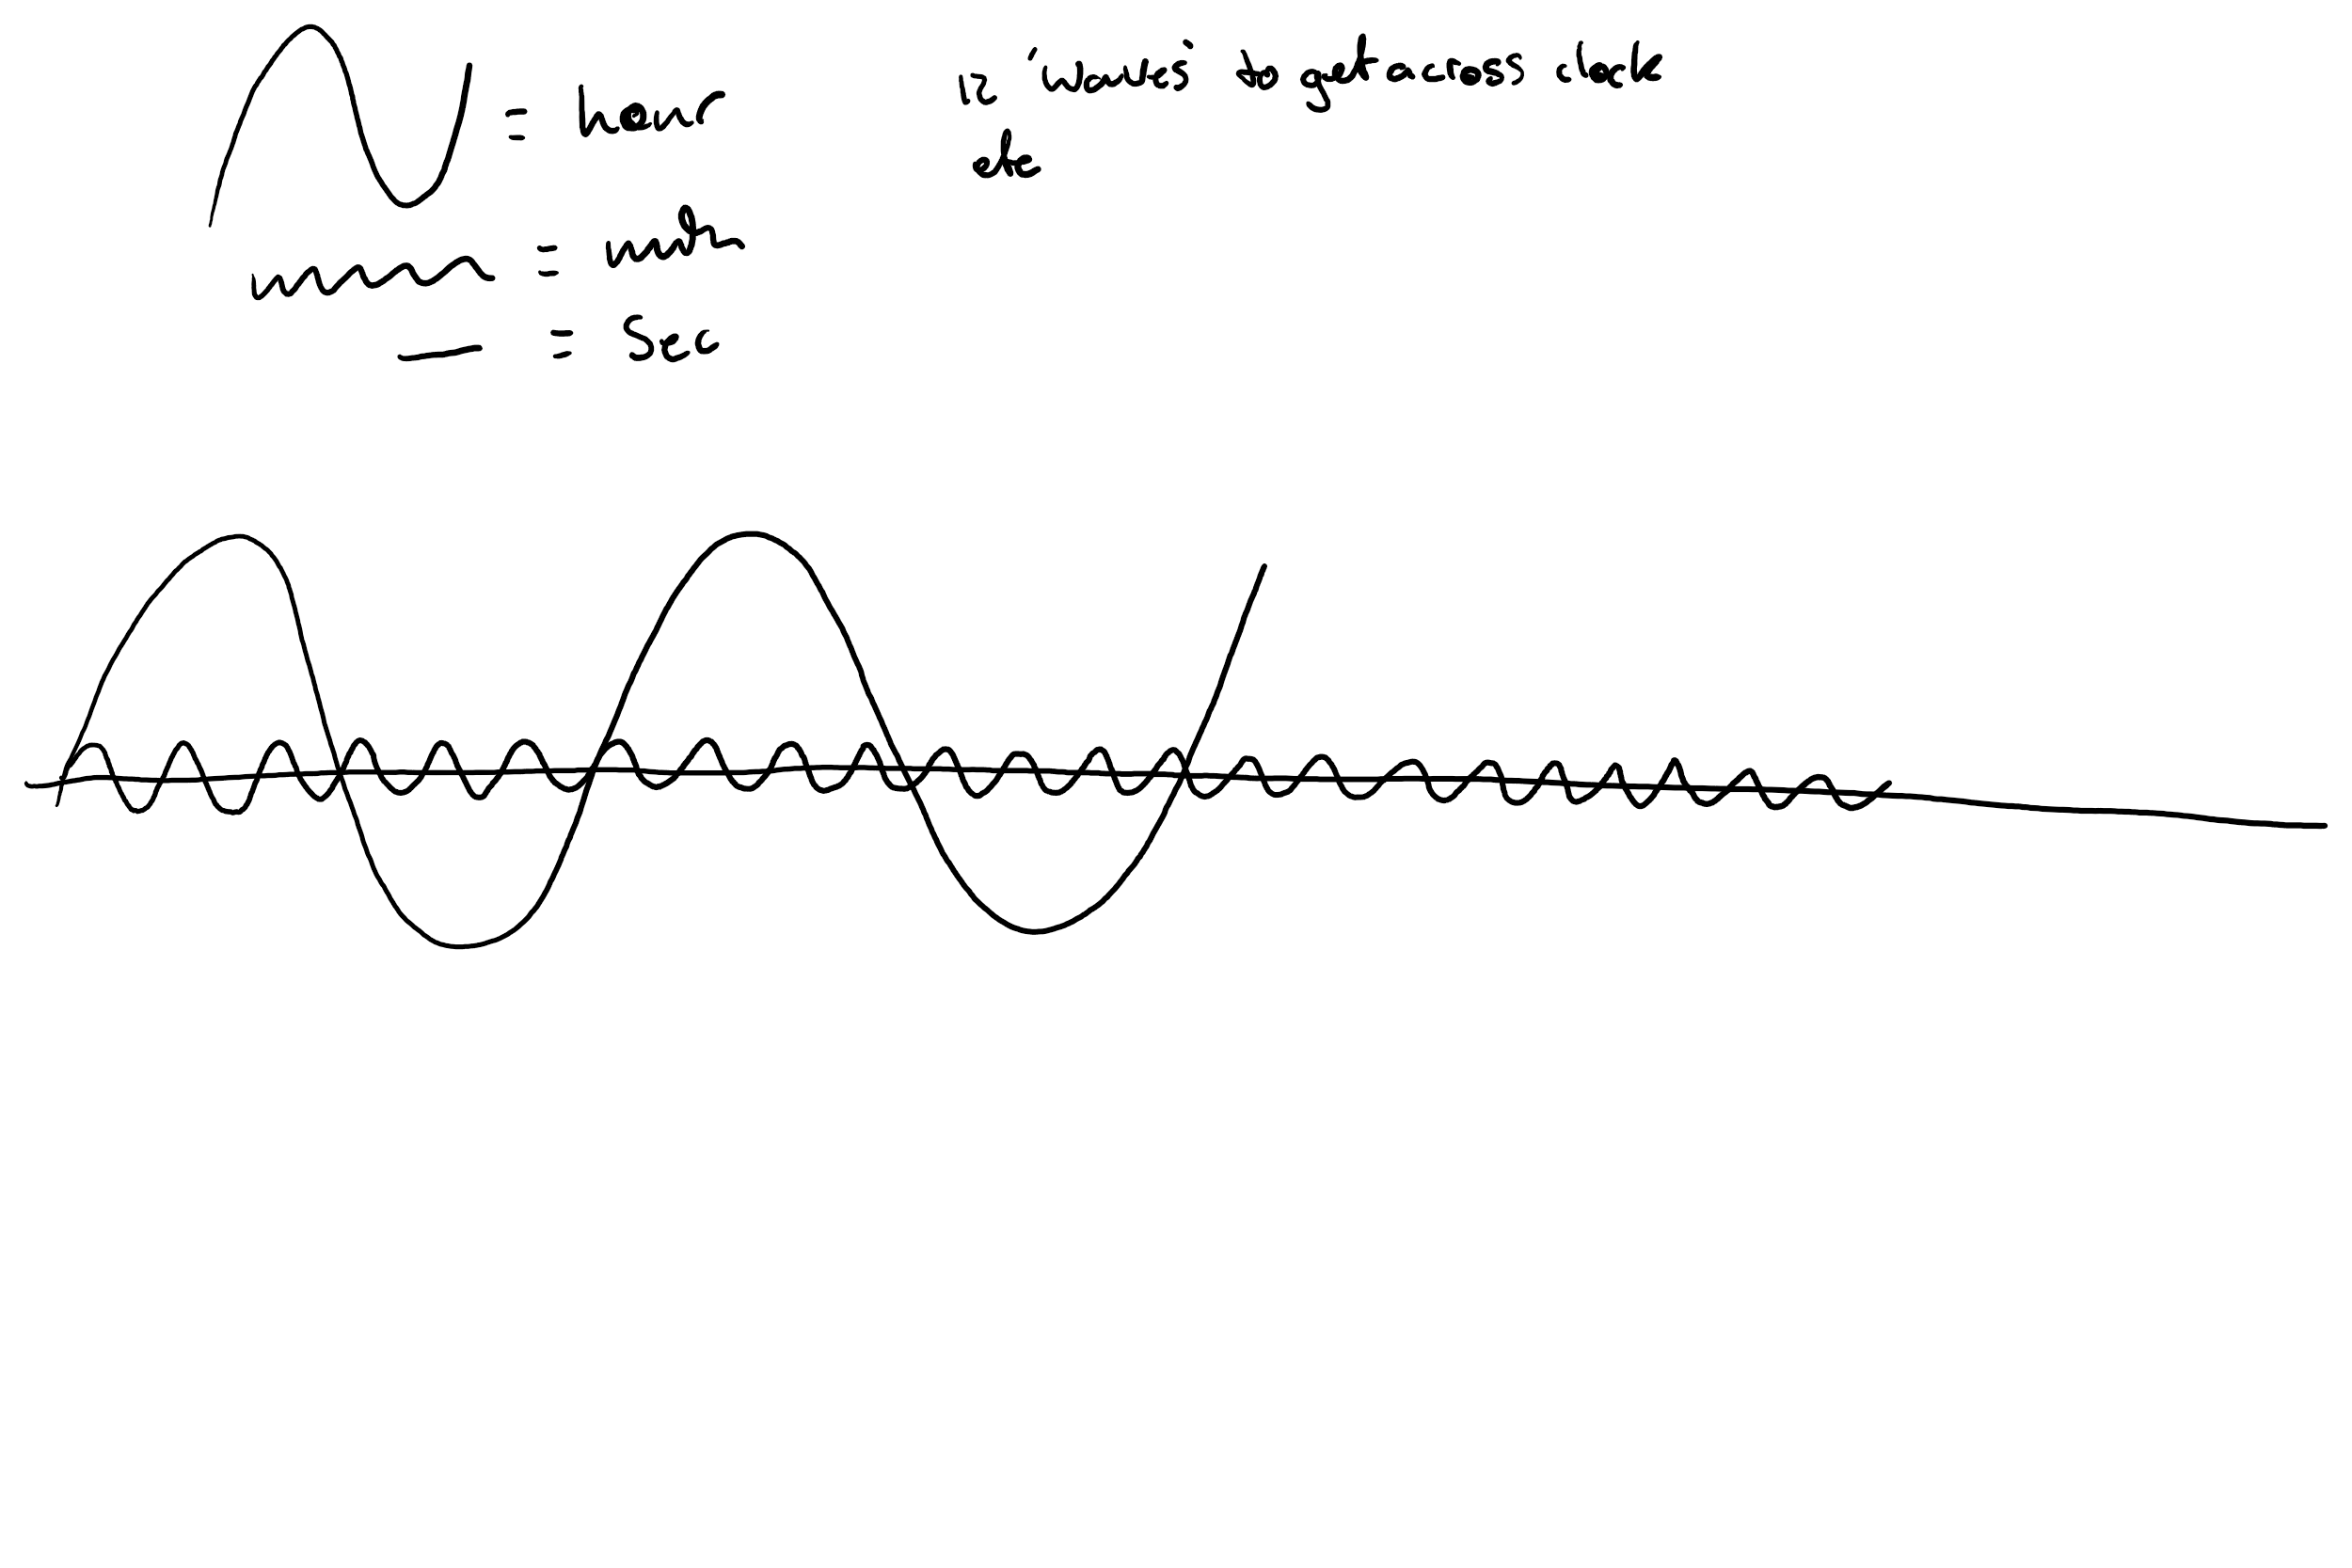 = hour
=
= Sec
12 'waves' to get across clock
etc